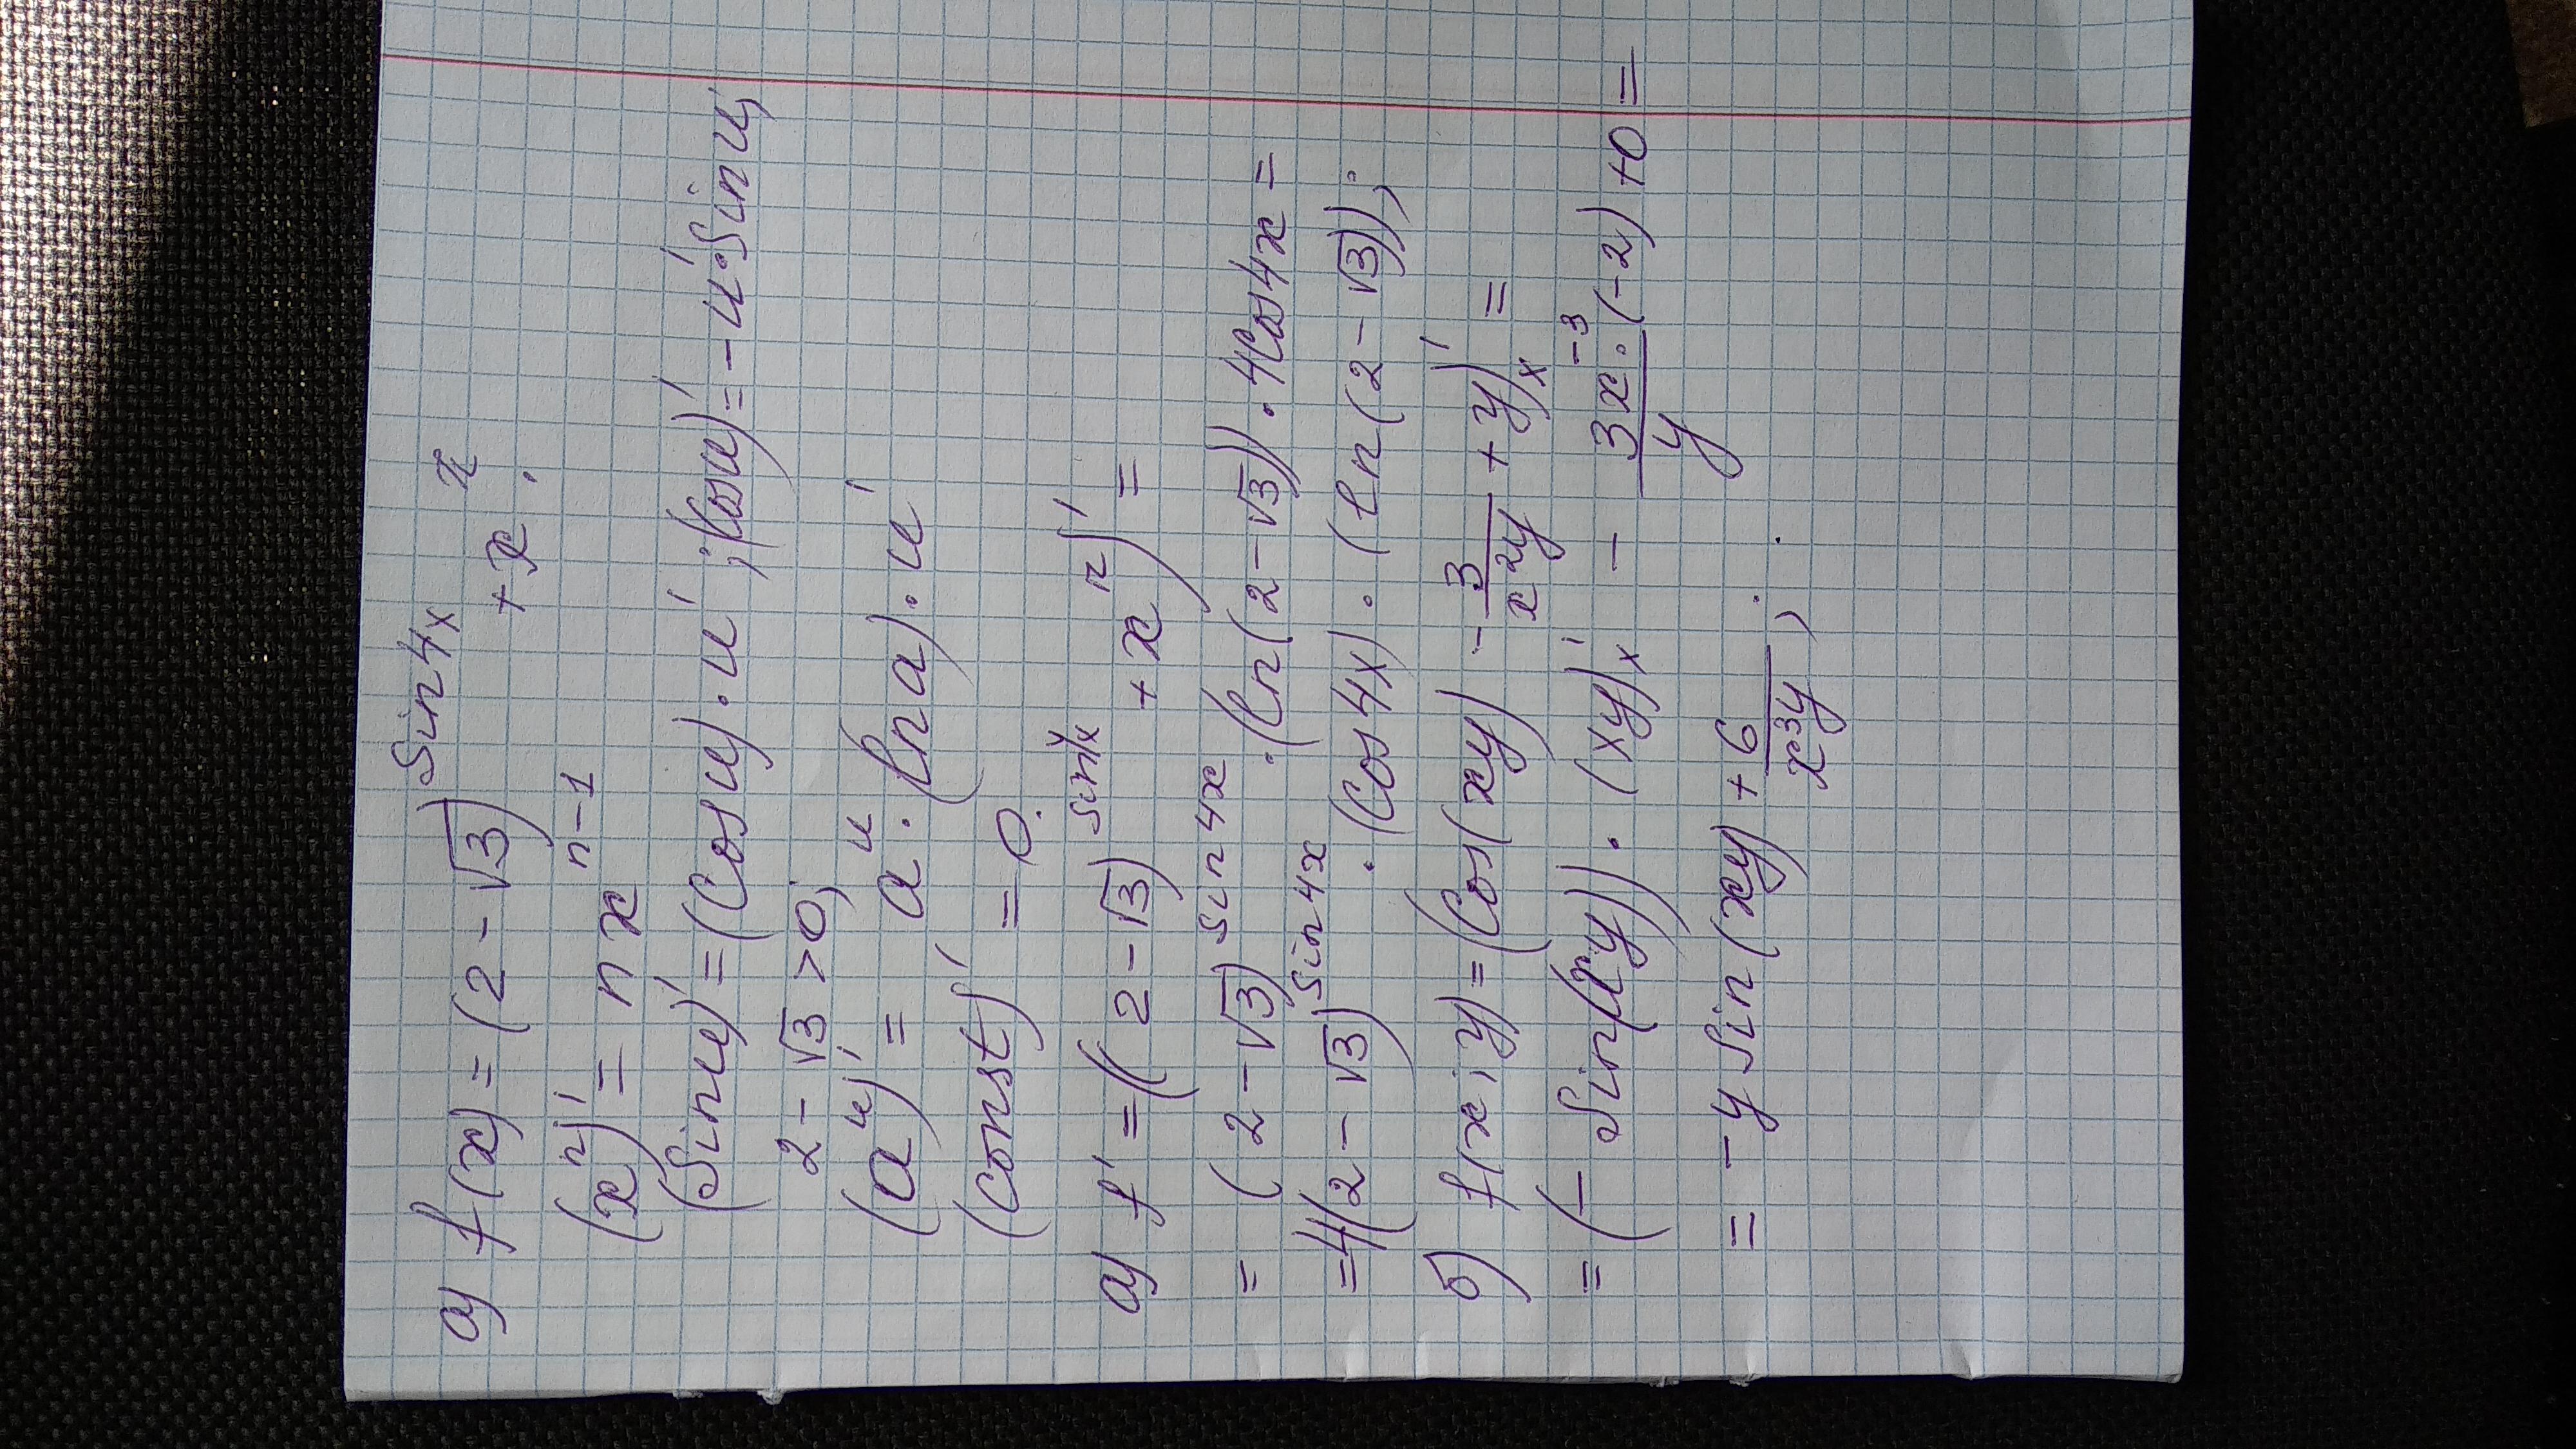 а) f(x) = (2-√3)^(Sin4x) + x^π.
(x^n)' = n x^(n-1)
(Sinu)' = (Cosu)·u'; (Cosu)' = -u'·Sinu;
2-√3>0;
(a^u)' = a^u·(ln a)·u'
(const)' = 0.
а) f' = ((2-√3)^(sin4x) + x^π)' =
= (2-√3)^(Sin4x)·(ln(2-√3))·4Cos4x =
=4(2-√3)^(Sin4x)·(Cos4x)·(ln(2-√3));
б) f(x;y)=(Cos(xy) - 3/(x^2y) + y)'x =
= (-Sin(xy))·(xy)'x - (3x^(-3)·(-2))/y +0=
= -ySin(xy) + 6/(x^3y);